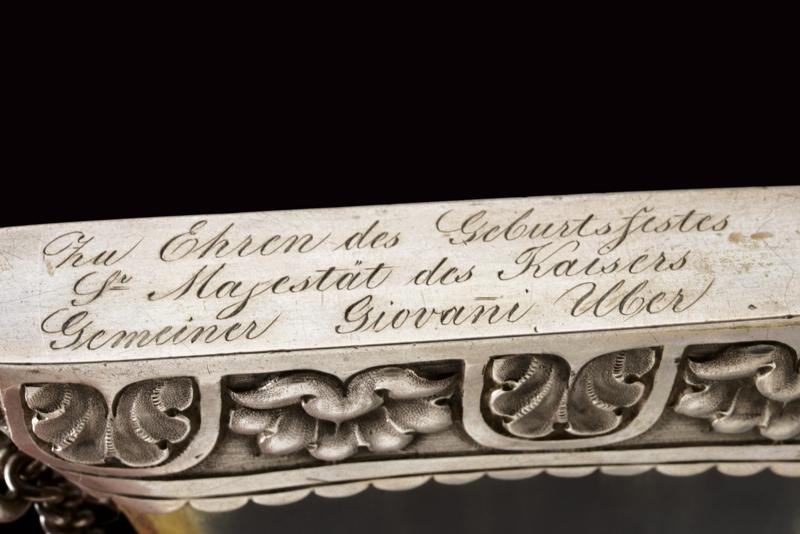 Zu Ehren des Geburtsfestes
Sr Majestät des Kaisers
Gemeiner Giovan̄i Uber